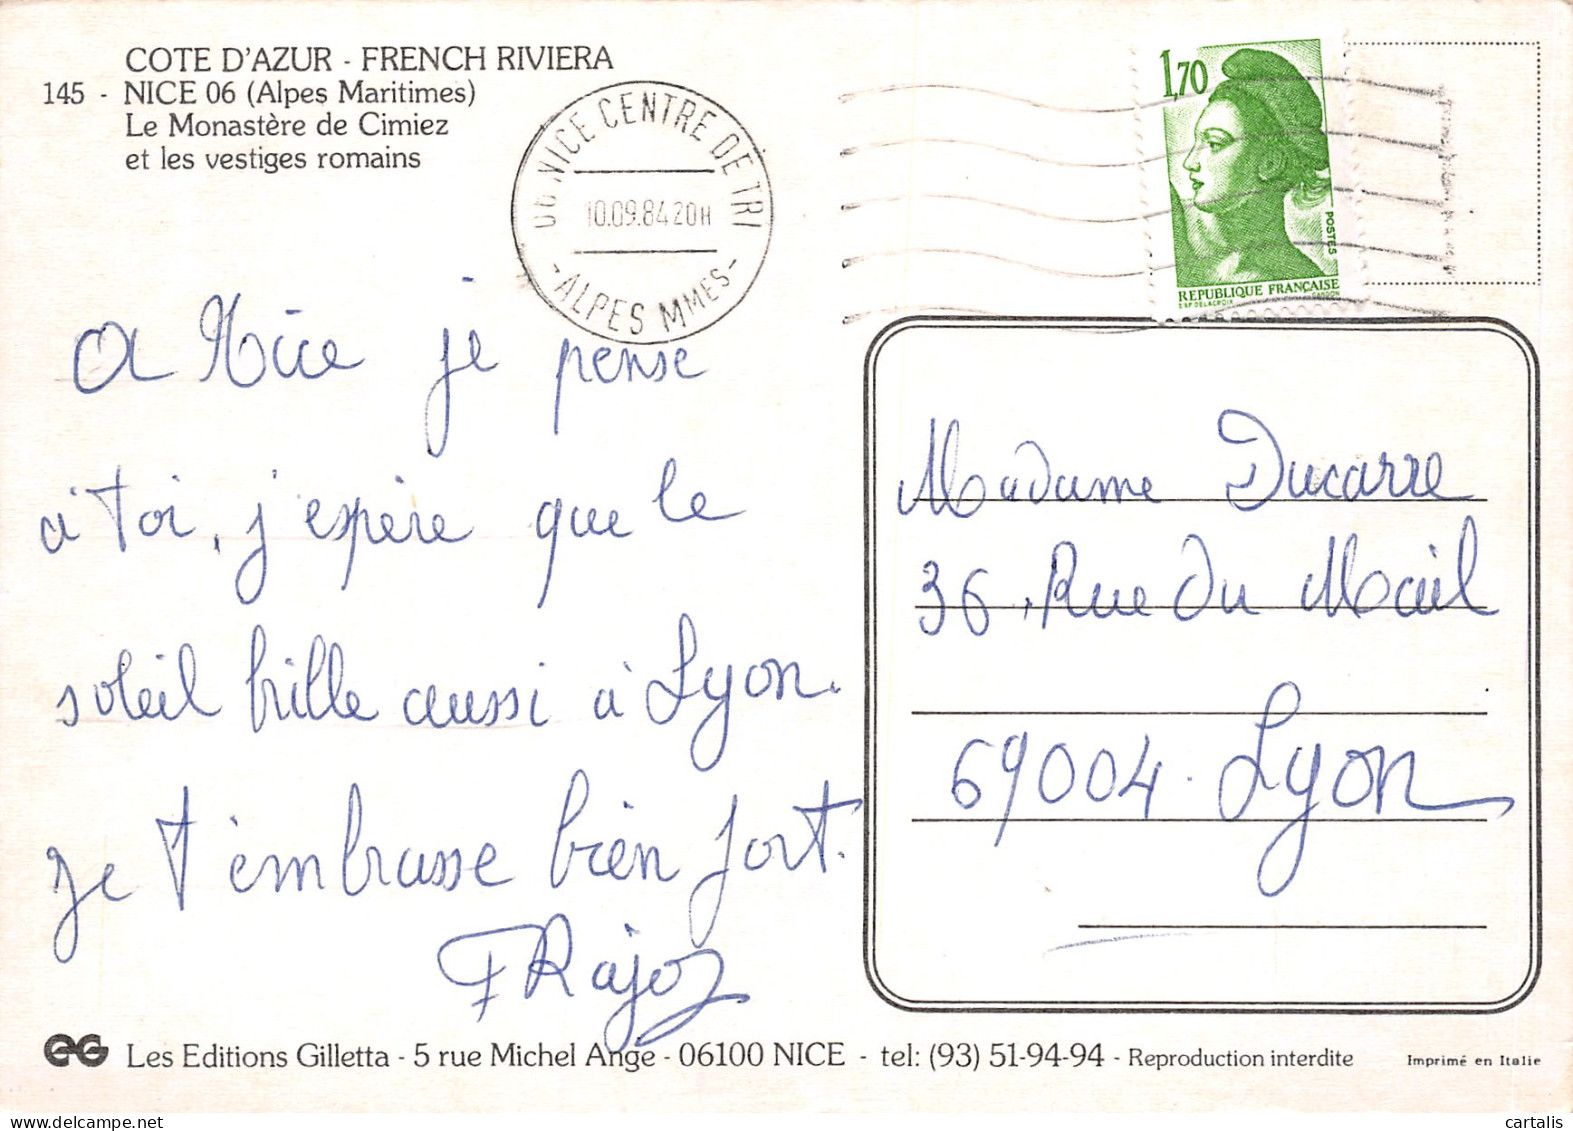 COTE D'AZUR - FRENCH RIVIERA
145 - NICE 06 (Alpes Maritimes)
Le Monastère de Cimiez
et les vestiges romains
06 NICE CENTRE DE TRI
10.09.84 20H
- ALPES MMES -
1,70
POSTES
REPUBLIQUE FRANÇAISE
D'AP. DELACROIX GANDON
A Nice je pense
à toi, j'espère que le
soleil brille aussi à Lyon.
Je t'embrasse bien fort.
F Rajoz
Madame Ducarre
36, Rue du Mail
69004. Lyon
EG Les Editions Gilletta - 5 rue Michel Ange - 06100 NICE - tel: (93) 51-94-94 - Reproduction interdite
Imprimé en Italie
cartalis.com